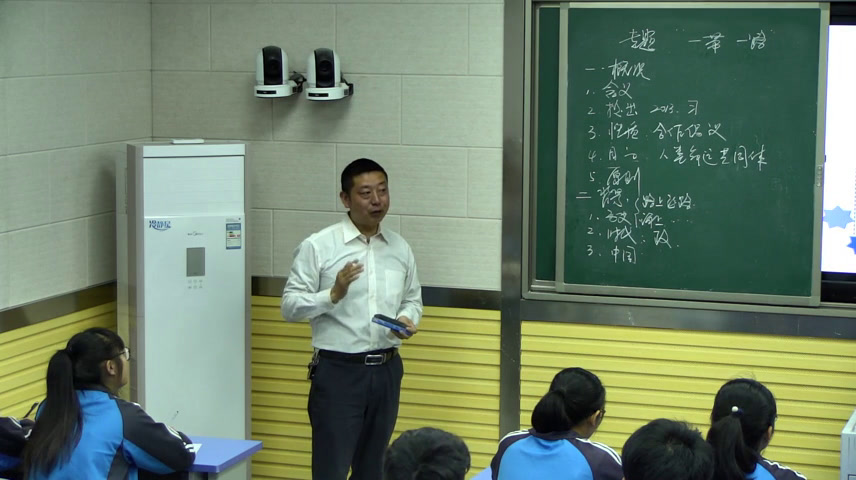 专题 "一带一路"
一. 概况
1. 含义
2. 提出 2013. 习
3. 性质 合作倡议
4. 目的 人类命运共同体
5. 原则
二 背景. 陆上丝路
1. 历史
2. 时代
3. 中国